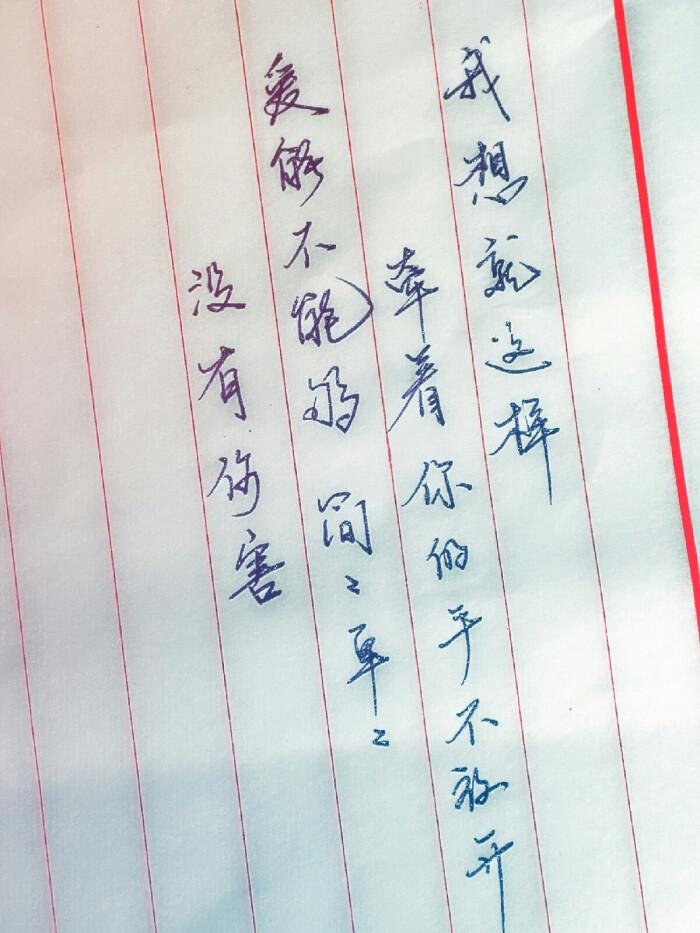 我想就这样
牵着你的手不放开
爱能不能够简〻单〻
没有伤害